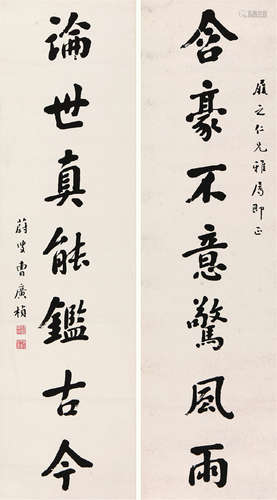 履之仁兄雅属即正
含豪不意驚風雨
論世真能鑑古今
蔚叟曹廣楨